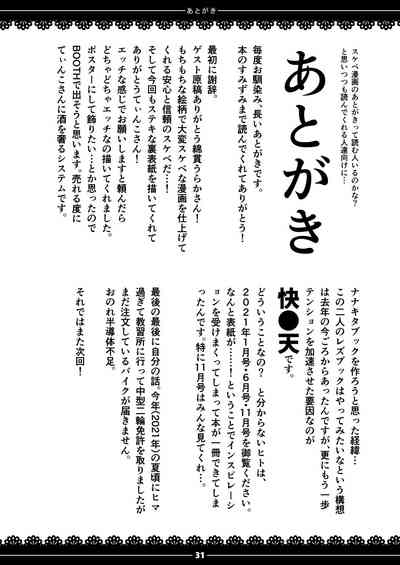 あとがき
スケベ漫画のあとがきって読む人いるのかな？
と思いつつも読んでくれる人達向けに…
あとがき
毎度お馴染み、長いあとがきです。
本のすみずみまで読んでくれてありがとう！
最初に謝辞。
ゲスト原稿ありがとう綿貫うらかさん！
もちもちな絵柄で大変スケベな漫画を仕上げて
くれる安心と信頼のスケベだ…！
そして今回もステキな裏表紙を描いてくれて
ありがとうてぃんこさん！
エッチな感じでお願いしますと頼んだら
どちゃどちゃエッチなの描いてくれました。
ポスターにして飾りたい…とか思ったので
BOOTHで出そうと思います。売れる度に
てぃんこさんに酒を奢るシステムです。
ナナキタブックを作ろうと思った経緯…
この二人のレズブックはやってみたいなという構想
は去年の今ごろからあったんですが、更にもう一歩
テンションを加速させた要因なのが
快●天です。
どういうことなの？　と分からないヒトは、
２０２１年１月号・６月号・１１月号を御覧ください。
なんと表紙が……！ということでインスピレーシ
ョンを受けまくってしまって本が一冊できてしま
ったんです。特に１１月号はみんな見てくれ…。
最後の最後に自分の話。今年(２０２１年)の夏頃にヒマ
過ぎて教習所に行って中型二輪免許を取りましたが
まだ注文しているバイクが届きません。
おのれ半導体不足。
それではまた次回！
31